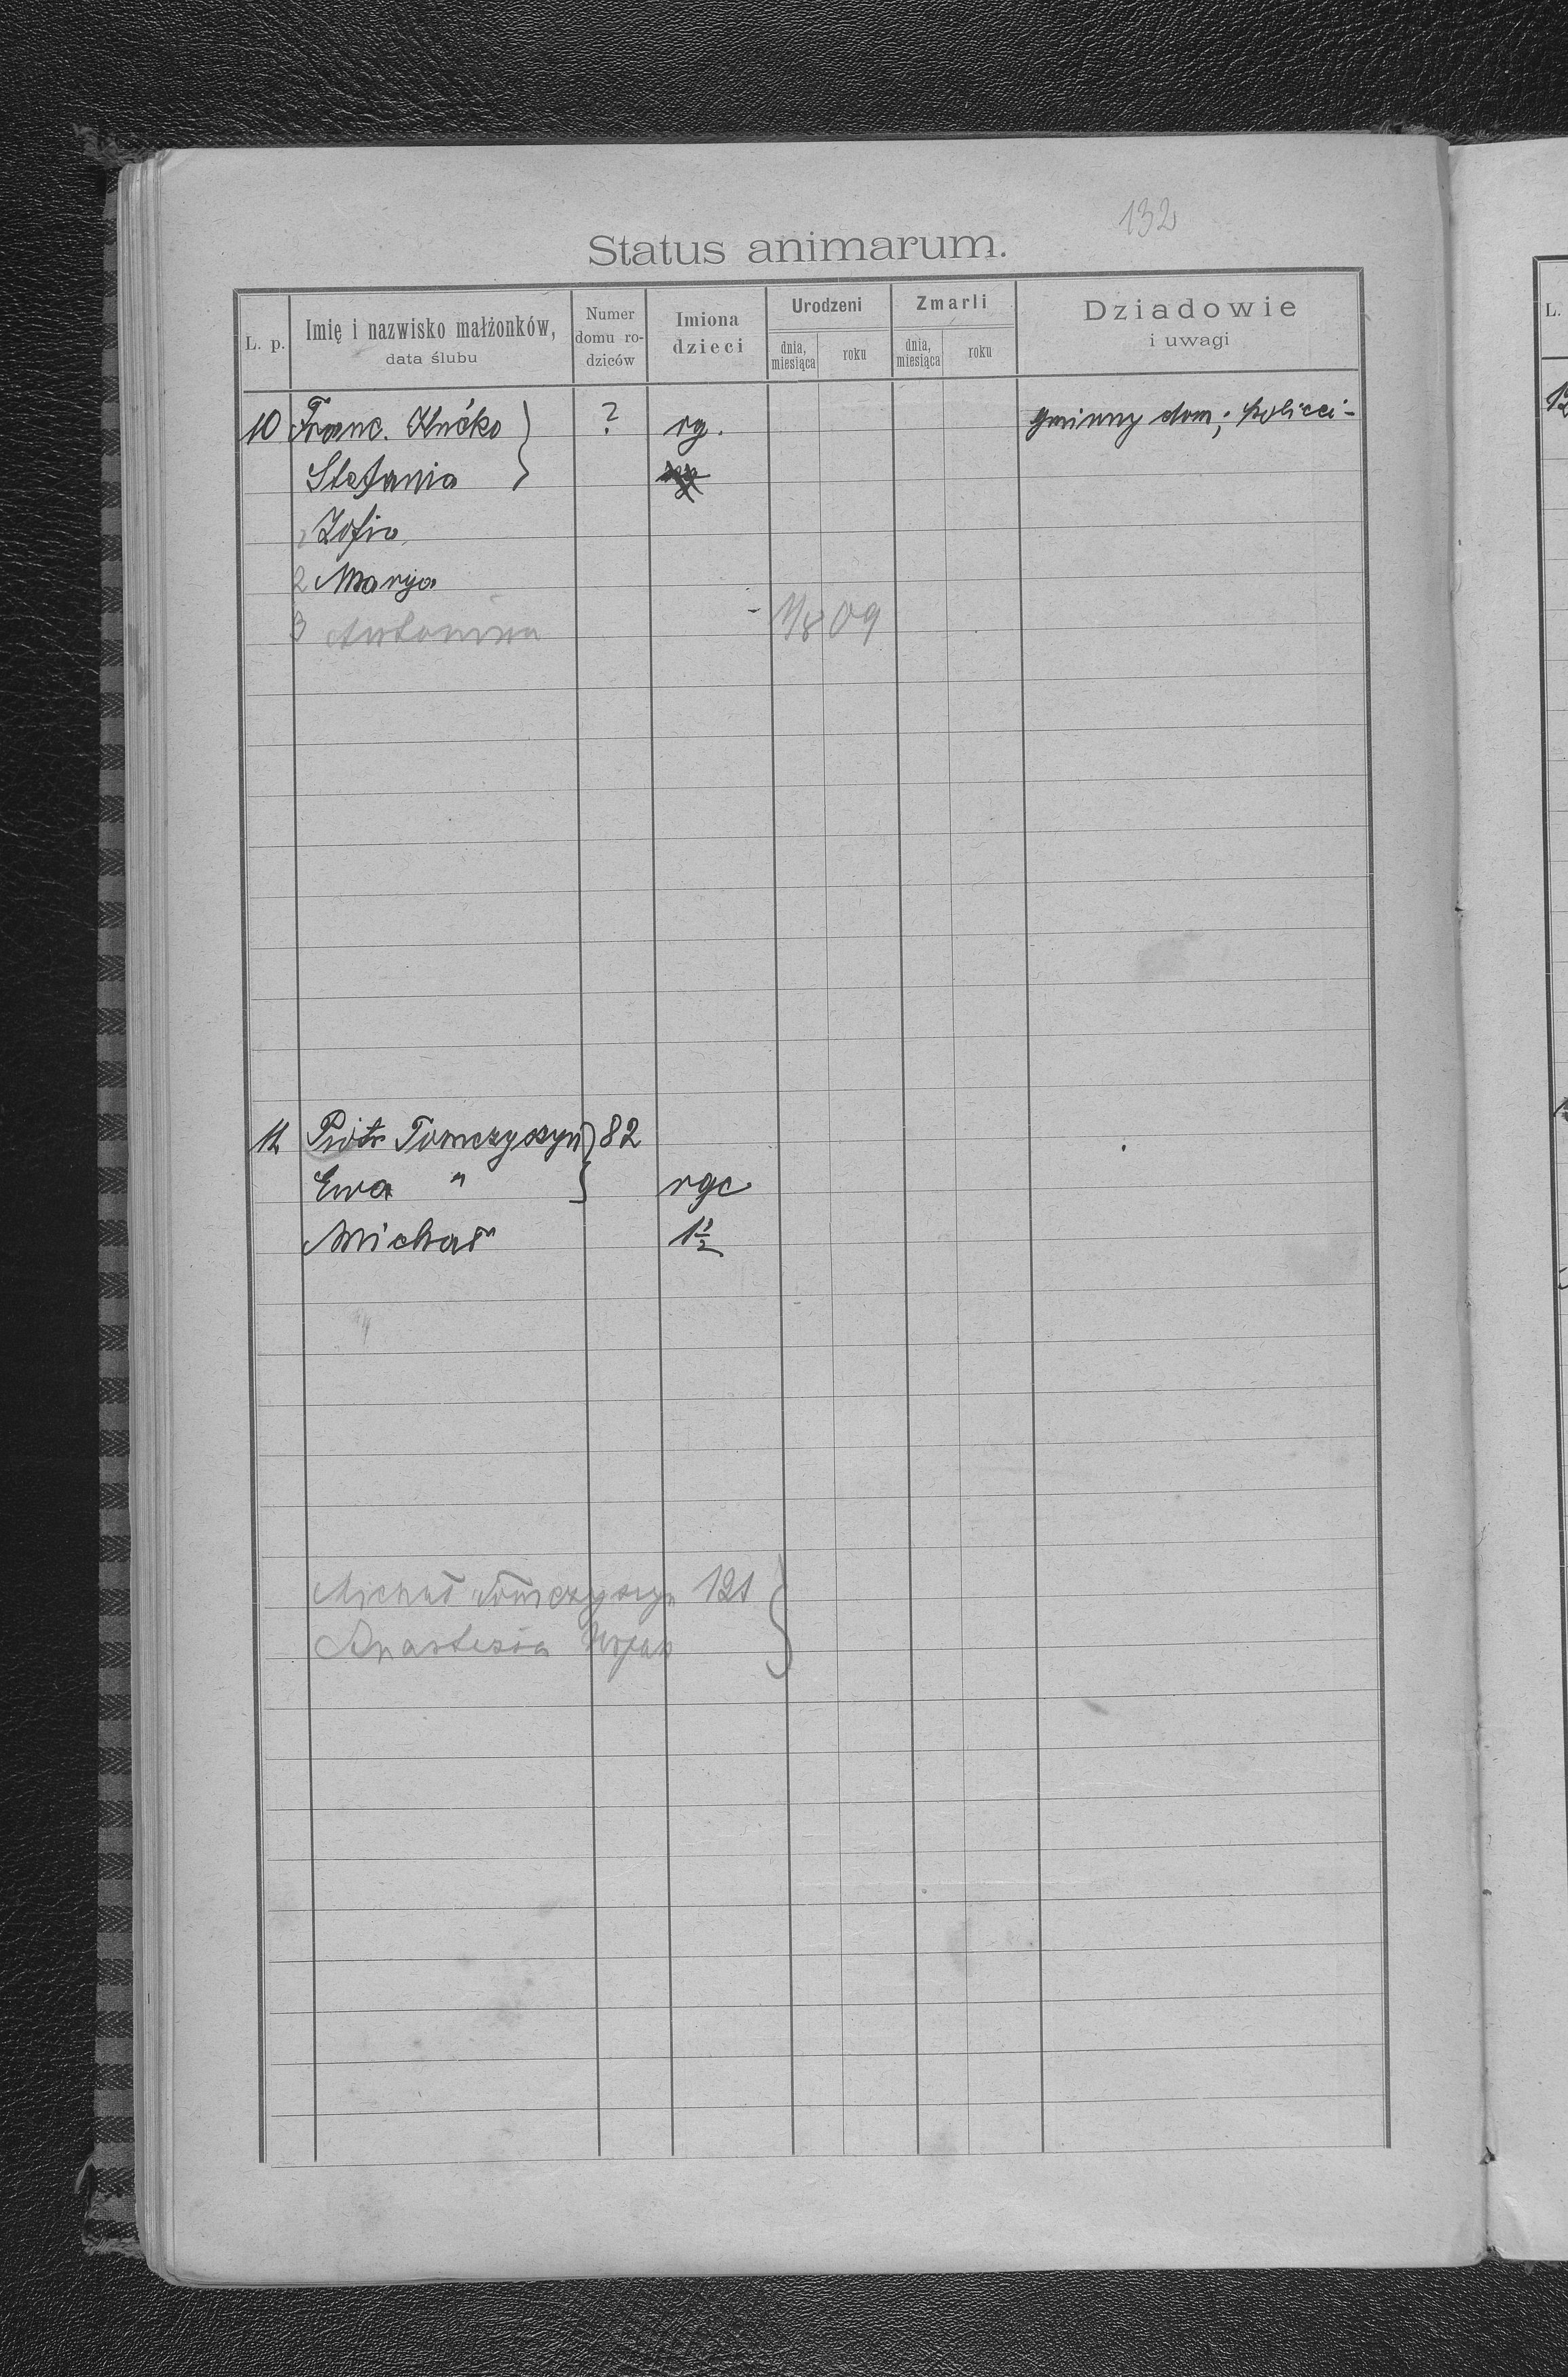 132
Status animarum.
L. p. Imię i nazwisko małżonków, data ślubu Numer domu rodziców Imiona dzieci Urodzeni dnia, miesiąca roku Zmarli dnia, miesiąca roku Dziadowie i uwagi
10 Franc. ? rg. gminny dom;
Stefania
1 Zofia
2 Marija
3 Antonina 1/8 09
11 Piotr Tomczyszyn 82
Ewa " rgc
Michał 1½
Michał Tomczyszyn 121
Anastazia
L.
12